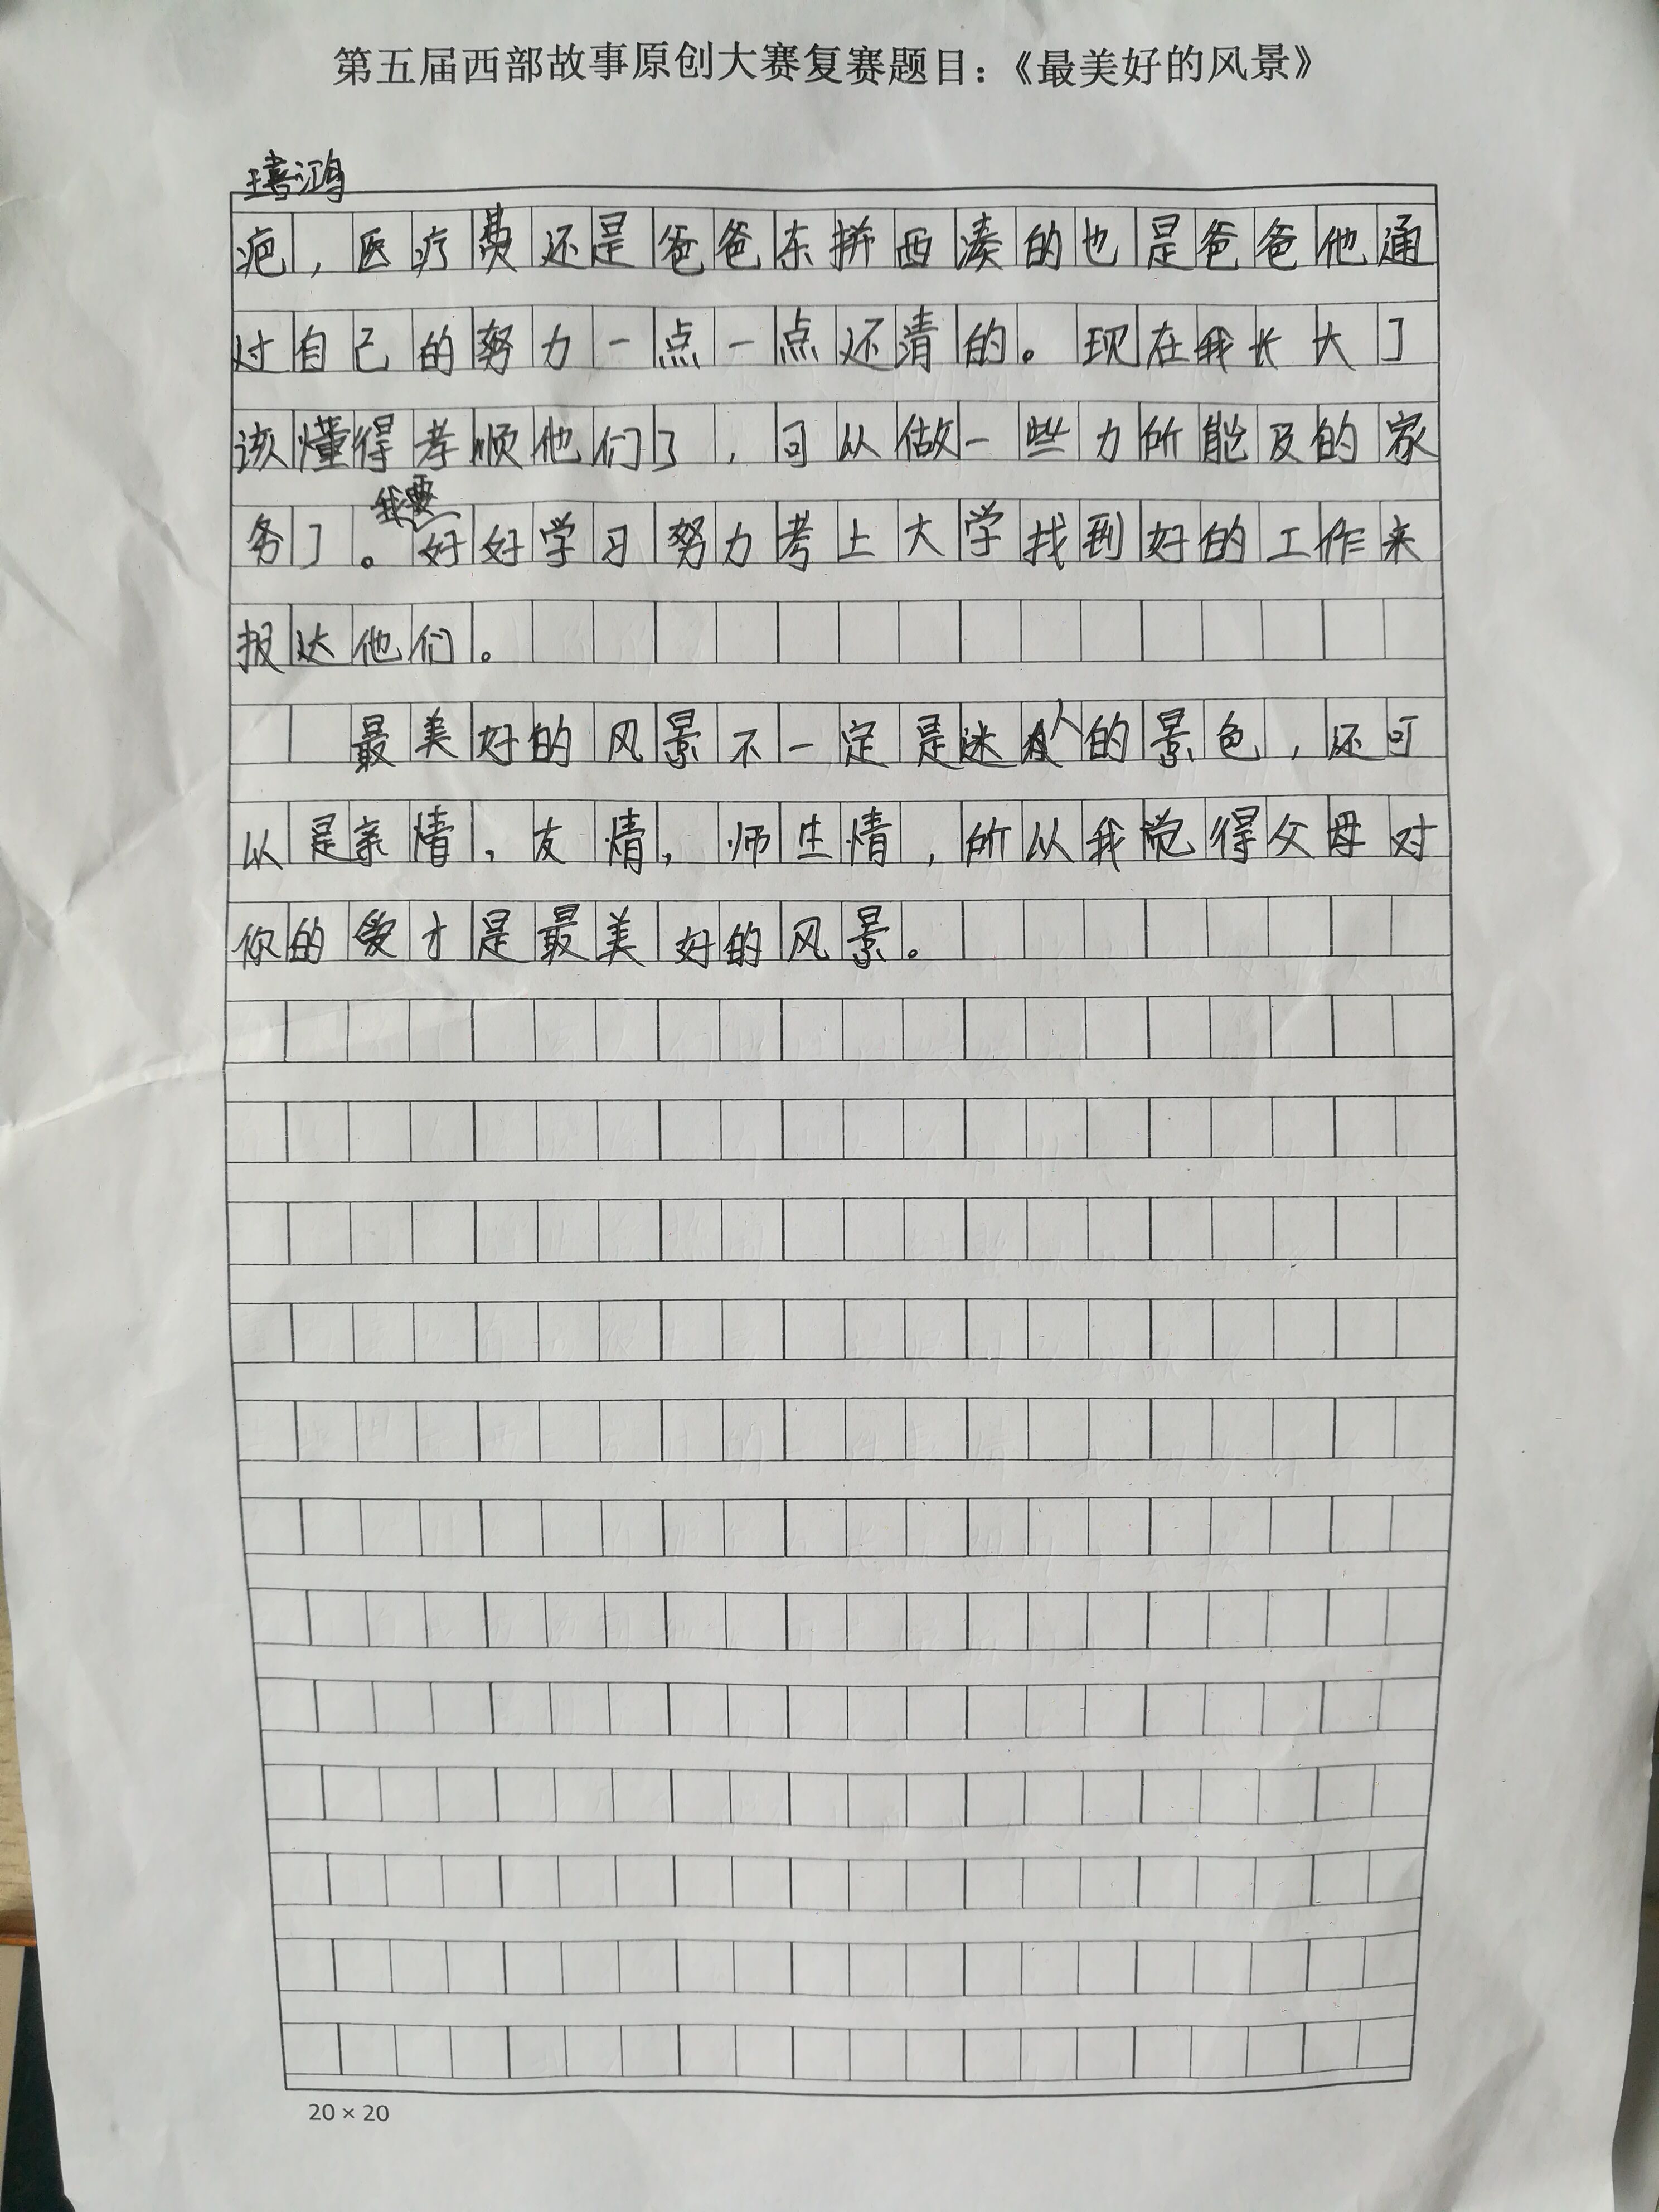 第五届西部故事原创大赛复赛题目：《最美好的风景》
鸿
疤，医疗费还是爸爸东拼西凑的也是爸爸他通
过自己的努力一点一点还清的。现在我长大了
该懂得孝顺他们了，可以做一些力所能及的家
我要
务了。好好学习努力考上大学找到好的工作来
报达他们。
最美好的风景不一定是迷人的景色，还可
以是亲情，友情，师生情，所以我觉得父母对
你的爱才是最美好的风景。
20×20